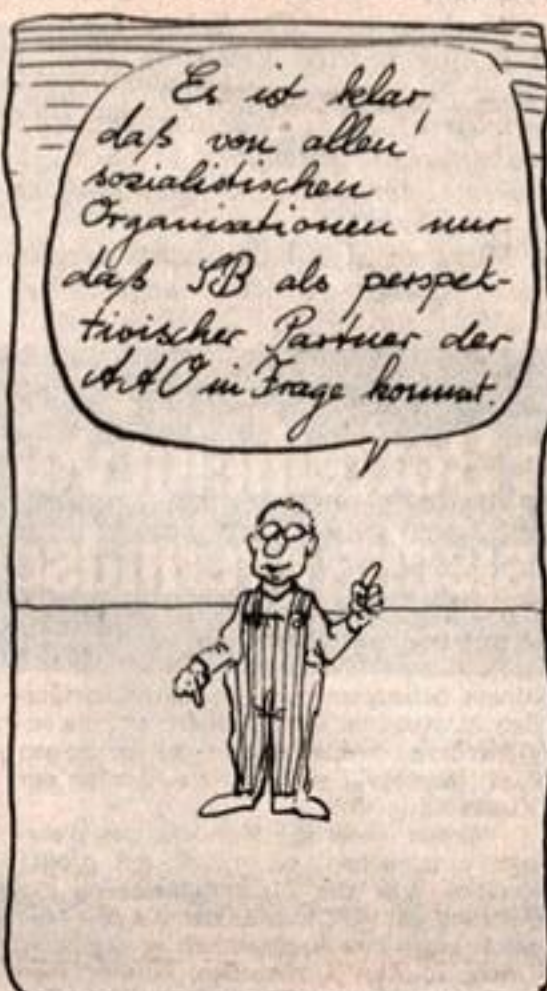 Es ist klar,
daß von allen
sozialistischen
Organisationen nur
daß SB als perspek-
tivischer Partner der
AAO in Frage kommt.